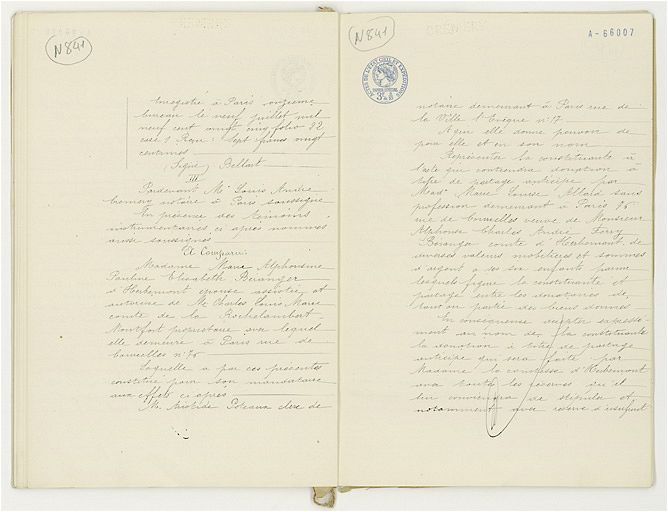 N841
Enregistré à Paris, onzième
bureau le neuf juillet mil
neuf cent vingt cinq folio 92
case 1 Reçu: Sept francs vingt
centimes
(Signé) Bellart
III
Pardevant Me Louis André
notaire à Paris soussigné
En présence des témoins
instrumentaires ci après nommés
aussi soussignés
A Comparu:
Madame Marie Alphonsine
Pauline Elisabeth Béranger
d'Herbemont épouse assistée et
autorisée de Mr Charles Louis Marie
comte de la Rochelambert-
Montfort propriétaire avec lequel
elle demeure à Paris rue de
Courcelles n° 75
Laquelle a par ces présentes
constitué pour son mandataire
aux effets ci après
M. Aristide Poteaux clerc de
N841
A-66007
ACTES DE L'ETAT CIVIL ET EXPEDITIONS
notaire demeurant à Paris rue de
la Ville l'Evêque n° 17.
A qui elle donne pouvoir de
pour elle et en son nom
Représenter la constituante à
l'acte que contiendra donation à
titre de partage anticipé par
Made Marie Louise Allard sans
profession demeurant à Paris 75
rue de Courcelles veuve de Monsieur
Alphonse Charles André Ferry
Béranger comte d'Herbemont, de
diverses valeurs mobilières et sommes
d'argent à ses enfants parmi
lesquels figure la constituante et
partage entre les donataires de
tout ou partie des biens donnés
En conséquence accepter expressé-
ment au nom de la constituante
la donation à titre de partage
anticipé qui sera faite par
Madame la comtesse d'Herbemont
sous toutes les réserves qu'il
leur conviendra de stipuler et
notamment avec réserve d'usufruit